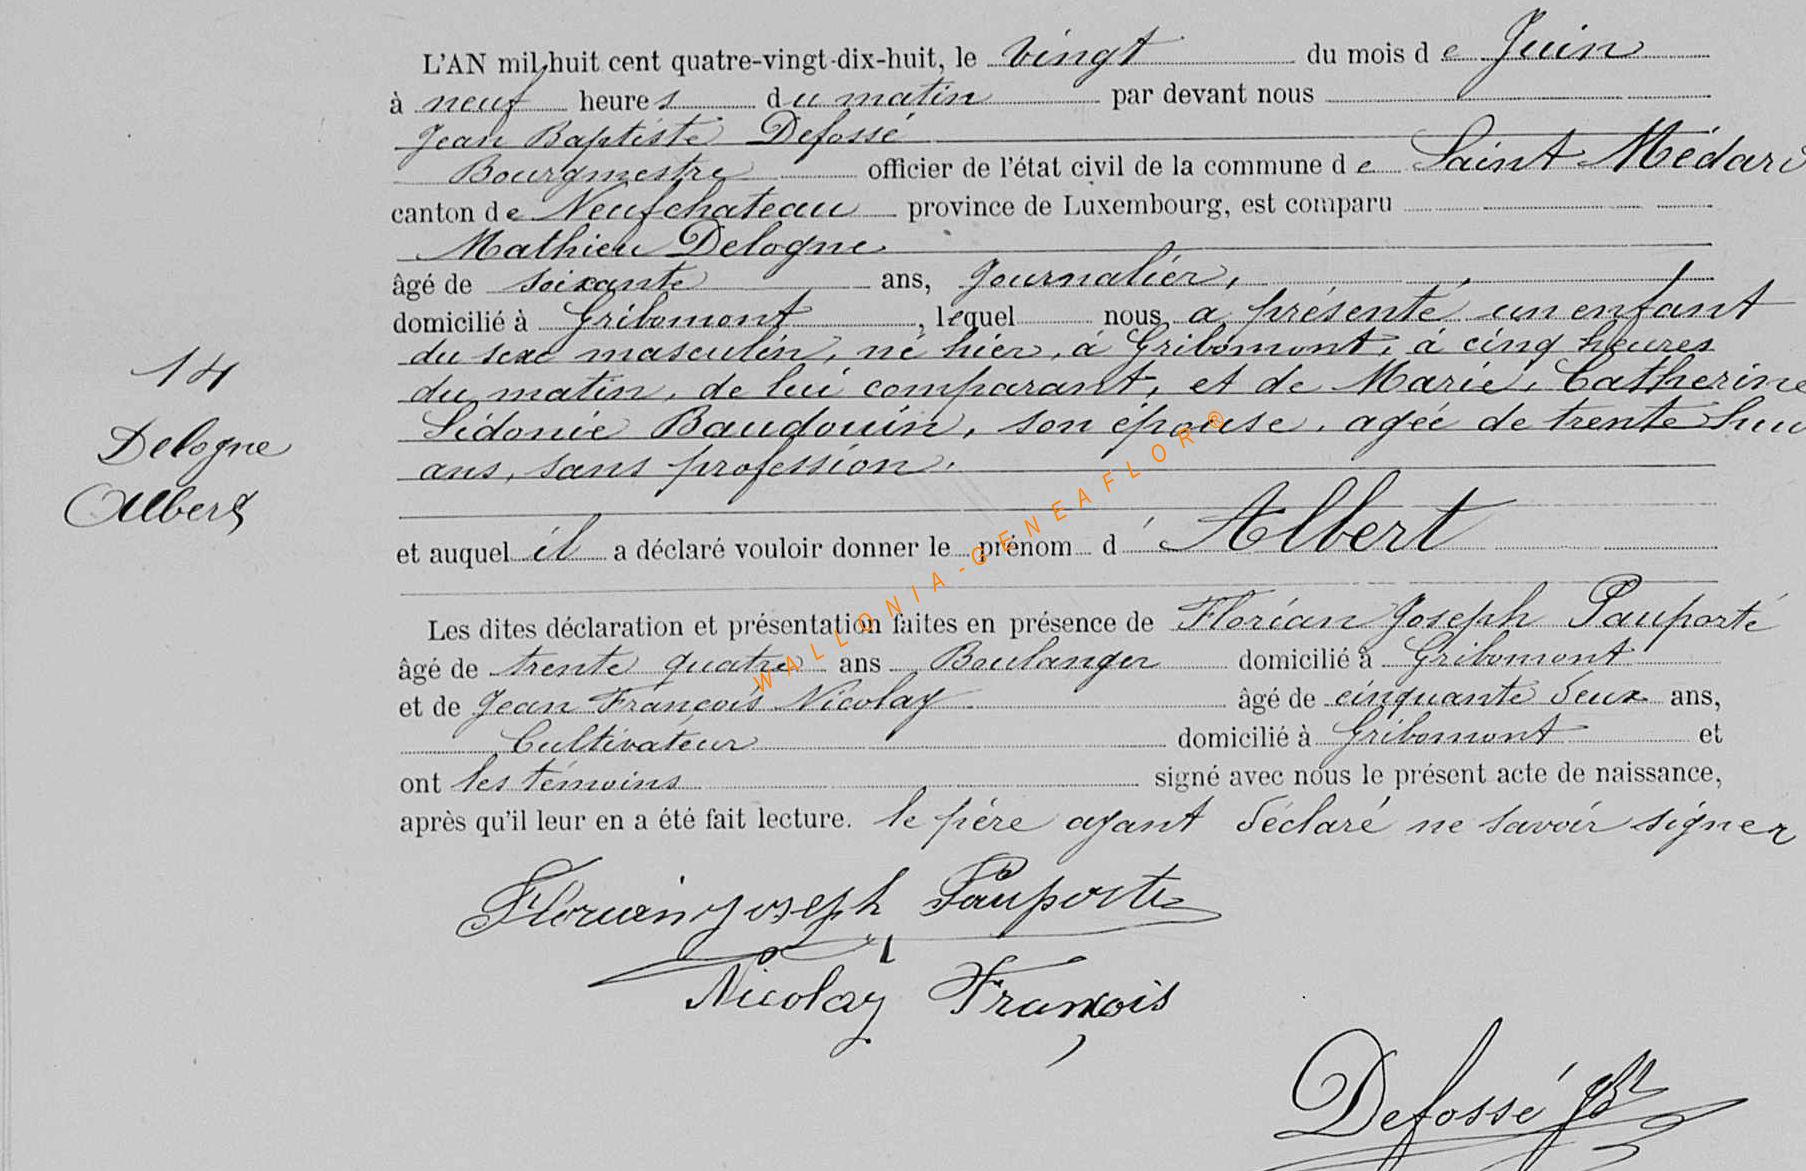 L'AN mil huit cent quatre-vingt-dix-huit, le vingt du mois de Juin
à neuf heures du matin par devant nous
Jean Baptiste Defossé
Bourgmestre officier de l'état civil de la commune de Saint Médard
canton de Neufchateau province de Luxembourg, est comparu
Mathieu Delogne
âgé de soixante ans, Journalier,
domicilié à Gribomont, lequel nous a présenté un enfant
du sexe masculin, né hier, à Gribomont, à cinq heures
du matin, de lui comparant, et de Marie, Catherine
Sidonie Baudouin, son épouse, agée de trente
ans, sans profession.
14
Delogne
Albert
et auquel il a déclaré vouloir donner le prénom d'Albert
Les dites déclaration et présentation faites en présence de Florian Joseph Pauporté
âgé de trente quatre ans Boulanger domicilié à Gribomont
et de Jean François Nicolay âgé de cinquante deux ans,
Cultivateur domicilié à Gribomont et
ont les témoins signé avec nous le présent acte de naissance,
après qu'il leur en a été fait lecture. le père ayant déclaré ne savoir signer
Florian joseph Pauporte
Nicolay François
Defossé JB
WALLONIA-GENEAFLOR©